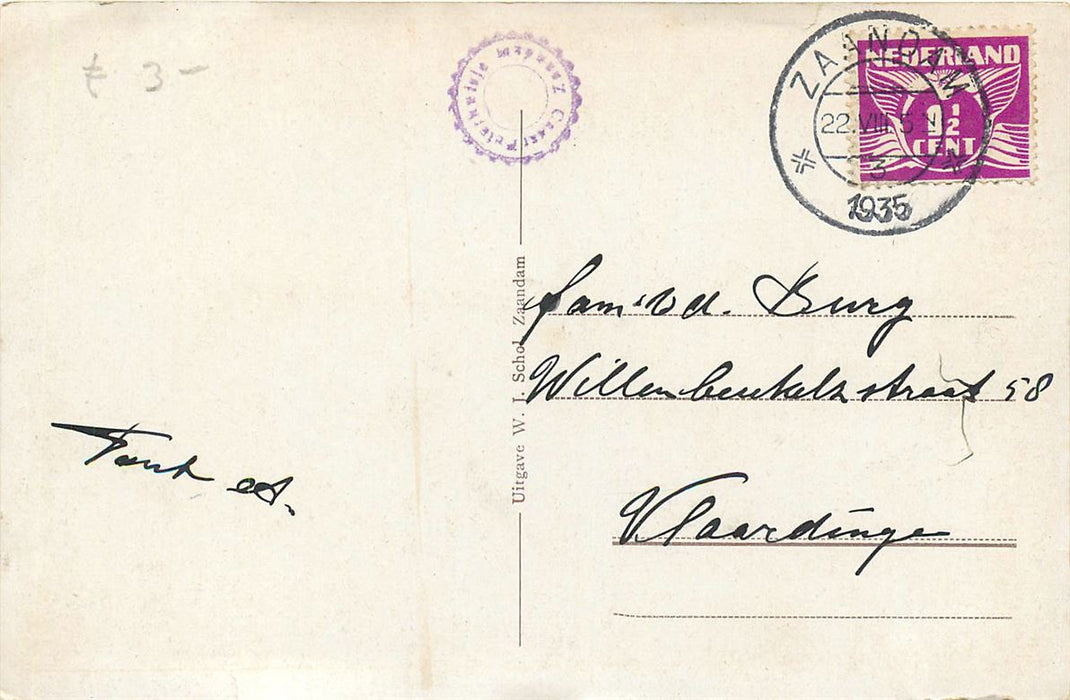 f 3 -
Czaar Peterhuisje Zaandam
ZAANDAM
22.VIII.5 N
3
1935
NEDERLAND
1½
CENT
Uitgave W. J. Schol Zaandam
Fam. v.d. Burg
Willem beukelsz straat 58
Vlaardinge